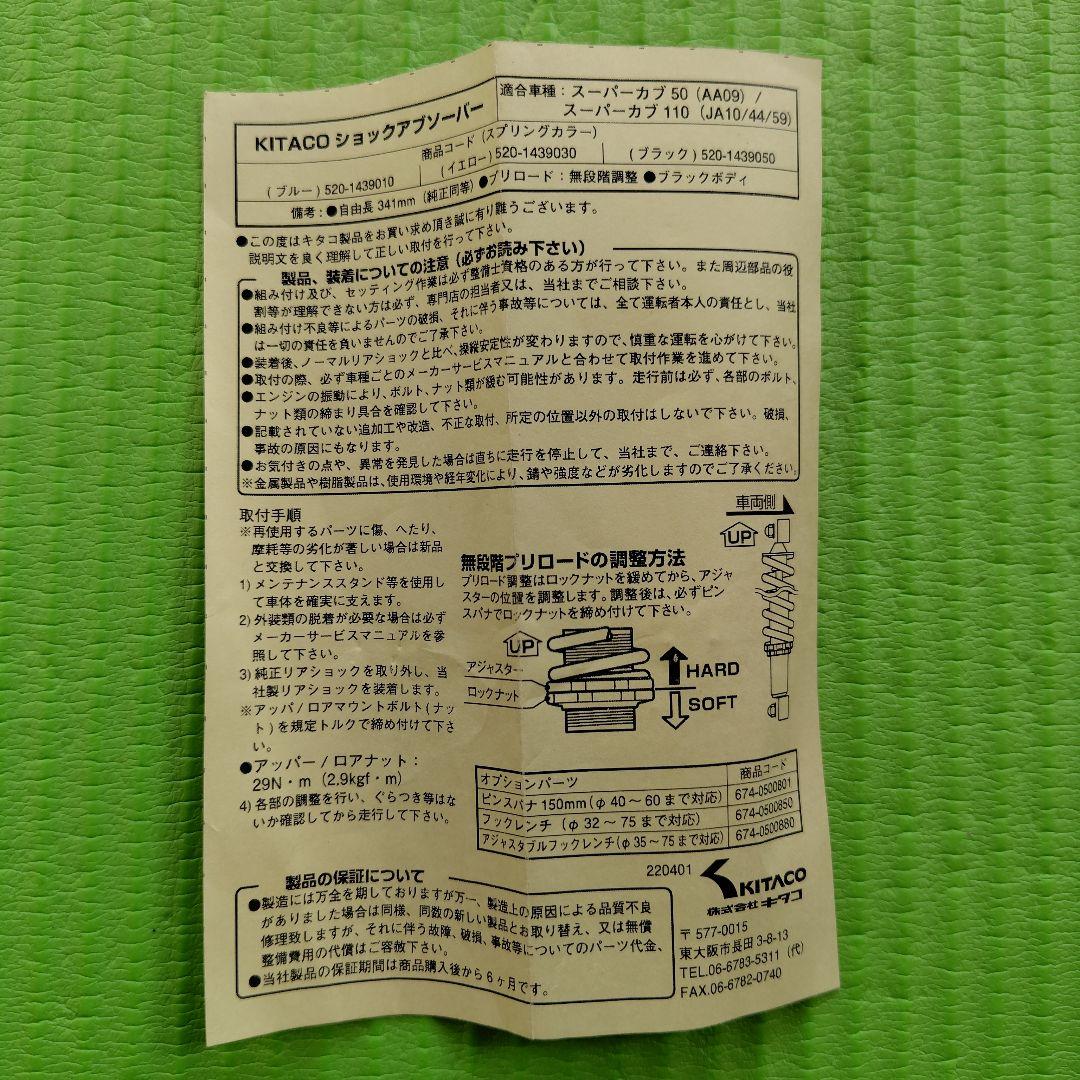 KITACO ショックアブソーバー
適合車種：スーパーカブ 50（AA09）/
スーパーカブ 110（JA10/44/59)
商品コード（スプリングカラー）
( ブルー ) 520-1439010
( イエロー) 520-1439030
( ブラック ) 520-1439050
備考：●自由長 341mm（純正同等）●プリロード：無段階調整 ●ブラックボディ
●この度はキタコ製品をお買い求め頂き誠に有り難うございます。
説明文を良く理解して正しい取付を行って下さい。
製品、装着についての注意（必ずお読み下さい）
●組み付け及び、セッティング作業は必ず整備士資格のある方が行って下さい。また周辺部品の役
割等が理解できない方は必ず、専門店の担当者又は、当社までご相談下さい。
●組み付け不良等によるパーツの破損、それに伴う事故等については、全て運転者本人の責任とし、当社
は一切の責任を負いませんのでご了承下さい。
●装着後、ノーマルリアショックと比べ、操縦安定性が変わりますので、慎重な運転を心がけて下さい。
●取付の際、必ず車種ごとのメーカーサービスマニュアルと合わせて取付作業を進めて下さい。
●エンジンの振動により、ボルト、ナット類が緩む可能性があります。走行前は必ず、各部のボルト、
ナット類の締まり具合を確認して下さい。
●記載されていない追加工や改造、不正な取付、所定の位置以外の取付はしないで下さい。破損、
事故の原因にもなります。
●お気付きの点や、異常を発見した場合は直ちに走行を停止して、当社まで、ご連絡下さい。
※金属製品や樹脂製品は、使用環境や経年変化により、錆や強度などが劣化しますのでご了承ください。
取付手順
※再使用するパーツに傷、へたり、
摩耗等の劣化が著しい場合は新品
と交換して下さい。
1) メンテナンススタンド等を使用し
て車体を確実に支えます。
2) 外装類の脱着が必要な場合は必ず
メーカーサービスマニュアルを参
照して下さい。
3) 純正リアショックを取り外し、当
社製リアショックを装着します。
※アッパ / ロアマウントボルト（ナッ
ト）を規定トルクで締め付けて下さ
い。
●アッパー / ロアナット：
29N・m（2.9kgf・m）
4) 各部の調整を行い、ぐらつき等はな
いか確認してから走行して下さい。
車両側
UP
無段階プリロードの調整方法
プリロード調整はロックナットを緩めてから、アジャ
スターの位置を調整します。調整後は、必ずピン
スパナでロックナットを締め付けて下さい。
UP
アジャスター
ロックナット
HARD
SOFT
オプションパーツ 商品コード
ピンスパナ 150mm（φ 40 〜 60 まで対応） 674-0500801
フックレンチ（φ 32 〜 75 まで対応） 674-0500850
アジャスタブルフックレンチ（φ 35〜75 まで対応） 674-0500880
製品の保証について
●製造には万全を期しておりますが万一、製造上の原因による品質不良
がありました場合は同様、同数の新しい製品とお取り替え、又は無償
修理致しますが、それに伴う故障、破損、事故等についてのパーツ代金、
整備費用の代償はご容赦下さい。
●当社製品の保証期間は商品購入後から 6 ヶ月です。
220401
KITACO
株式会社 キタコ
〒 577-0015
東大阪市長田 3-8-13
TEL.06-6783-5311（代）
FAX.06-6782-0740